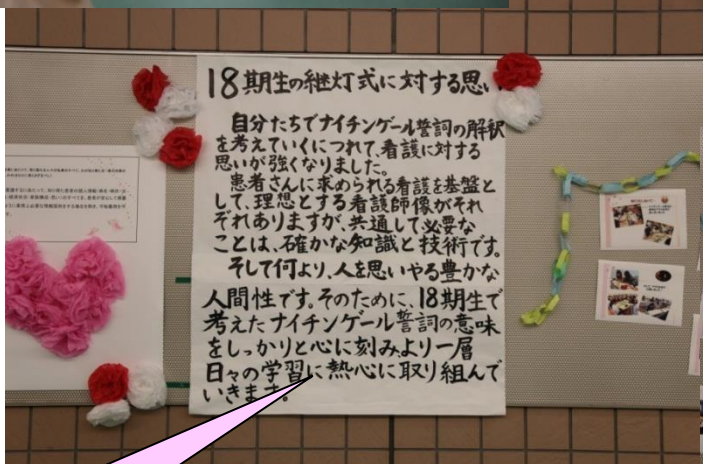 18期生の継灯式に対する思い
自分たちでナイチンゲール誓詞の解釈
を考えていくにつれて、看護に対する
思いが強くなりました。
患者さんに求められる看護を基盤と
して、理想とする看護師像がそれ
ぞれありますが、共通して必要な
ことは、確かな知識と技術です。
そして何より、人を思いやる豊かな
人間性です。そのために、18期生で
考えたナイチンゲール誓詞の意味
をしっかりと心に刻みより一層
日々の学習に熱心に取り組んで
いきます。